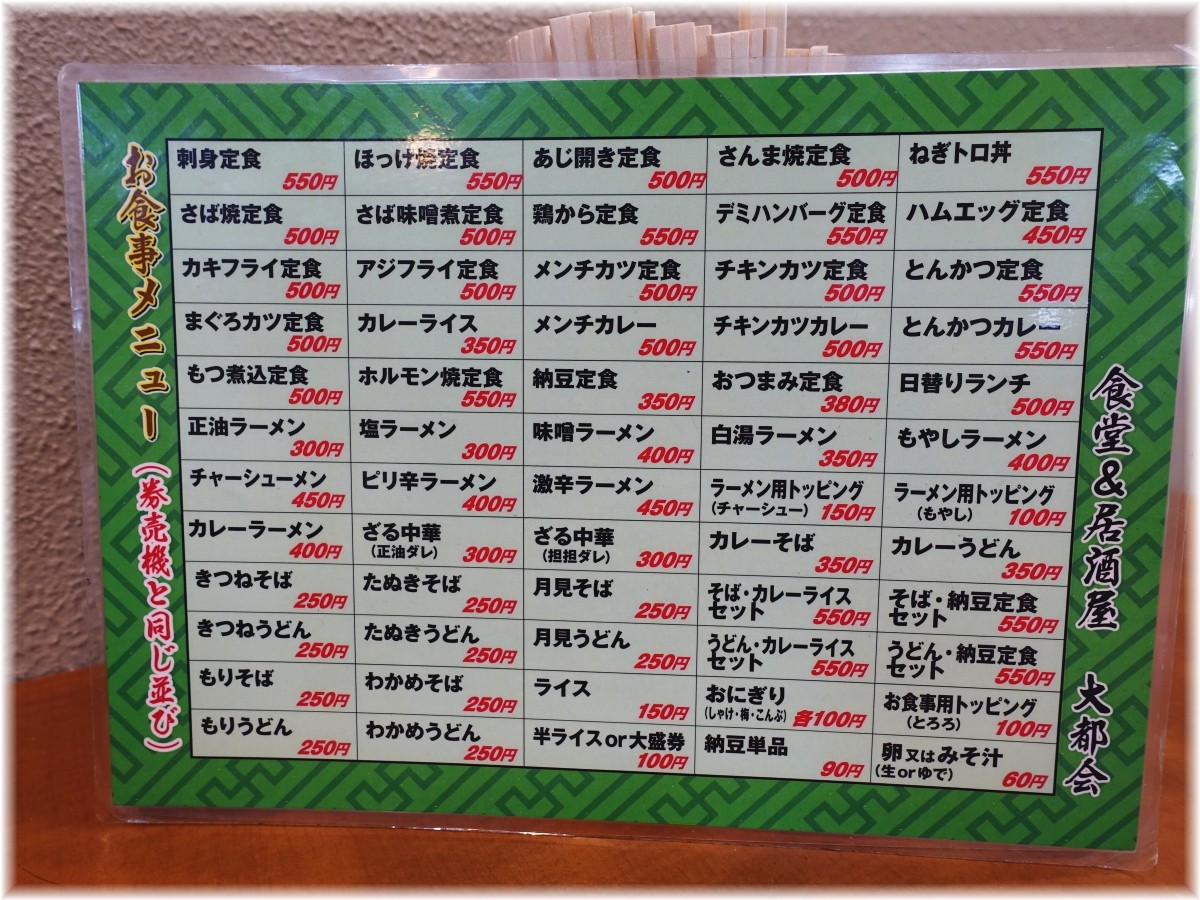 お食事メニュー(券売機と同じ並び)
刺身定食 550円
ほっけ焼定食 550円
あじ開き定食 500円
さんま焼定食 500円
ねぎトロ丼 550円
さば焼定食 500円
さば味噌煮定食 500円
鶏から定食 550円
デミハンバーグ定食 550円
ハムエッグ定食 450円
カキフライ定食 500円
アジフライ定食 500円
メンチカツ定食 500円
チキンカツ定食 500円
とんかつ定食 550円
まぐろカツ定食 500円
カレーライス 350円
メンチカレー 500円
チキンカツカレー 500円
とんかつカレー 550円
もつ煮込定食 500円
ホルモン焼定食 550円
納豆定食 350円
おつまみ定食 380円
日替りランチ 500円
正油ラーメン 300円
塩ラーメン 300円
味噌ラーメン 400円
白湯ラーメン 350円
もやしラーメン 400円
チャーシューメン 450円
ピリ辛ラーメン 400円
激辛ラーメン 450円
ラーメン用トッピング
(チャーシュー) 150円
ラーメン用トッピング
(もやし) 100円
カレーラーメン 400円
ざる中華
(正油ダレ) 300円
ざる中華
(担担ダレ) 300円
カレーそば 350円
カレーうどん 350円
きつねそば 250円
たぬきそば 250円
月見そば 250円
そば・カレーライス
セット 550円
そば・納豆定食
セット 550円
きつねうどん 250円
たぬきうどん 250円
月見うどん 250円
うどん・カレーライス
セット 550円
うどん・納豆定食
セット 550円
もりそば 250円
わかめそば 250円
ライス 150円
おにぎり
(しゃけ・梅・こんぶ) 各100円
お食事用トッピング
(とろろ) 100円
もりうどん 250円
わかめうどん 250円
半ライスor大盛券 100円
納豆単品 90円
卵又はみそ汁
(生orゆで) 60円
食堂&居酒屋 大都会